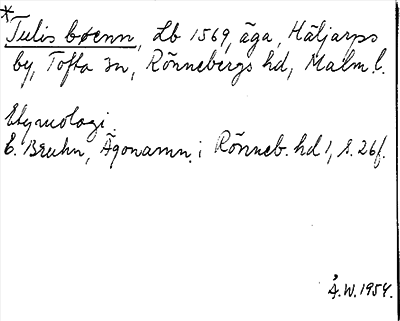 *
Tulis børnn, Lb 1569, äga, Häljarps
by, Tofta sn, Rönnebergs hd, Malm. l.
Etymologi.
E. Bruhn, Ägonamn i Rönneb. hd 1, s. 26f.
Å.W. 1954.